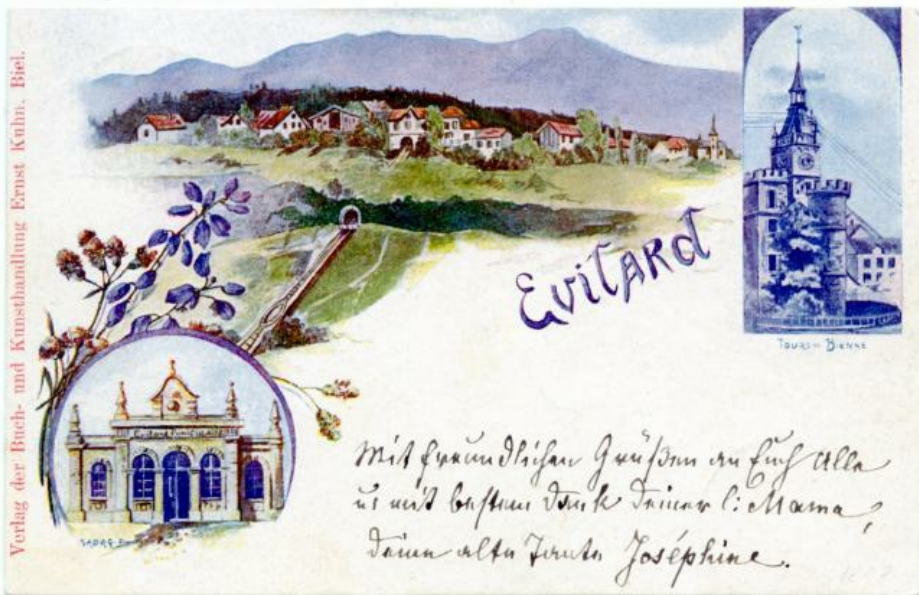 Verlag der Buch- und Kunsthandlung Ernst Kuhn, Biel.
Evilard
Tours Bienne
Evilard Funiculaire
Mit freundlichen Grüßen an Euch Alle
u: mit bestem Dank Deiner l: Mama,
Deine alte Tante Joséphine.